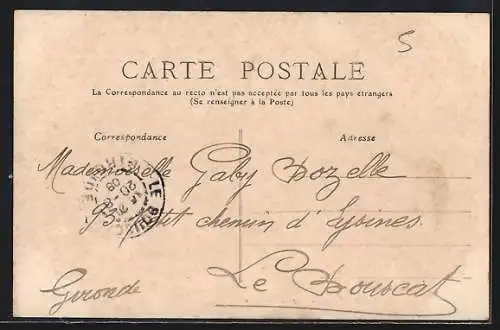 5
CARTE POSTALE
La Correspondance au recto n'est pas acceptée par tous les pays étrangers
(Se renseigner à la Poste)
Correspondance
Adresse
Mademoiselle Gaby Bozelle
95 petit chemin d'Eysines
Gironde Le Bouscat
LE BOUSCAT
GIRONDE
20 - 8
08